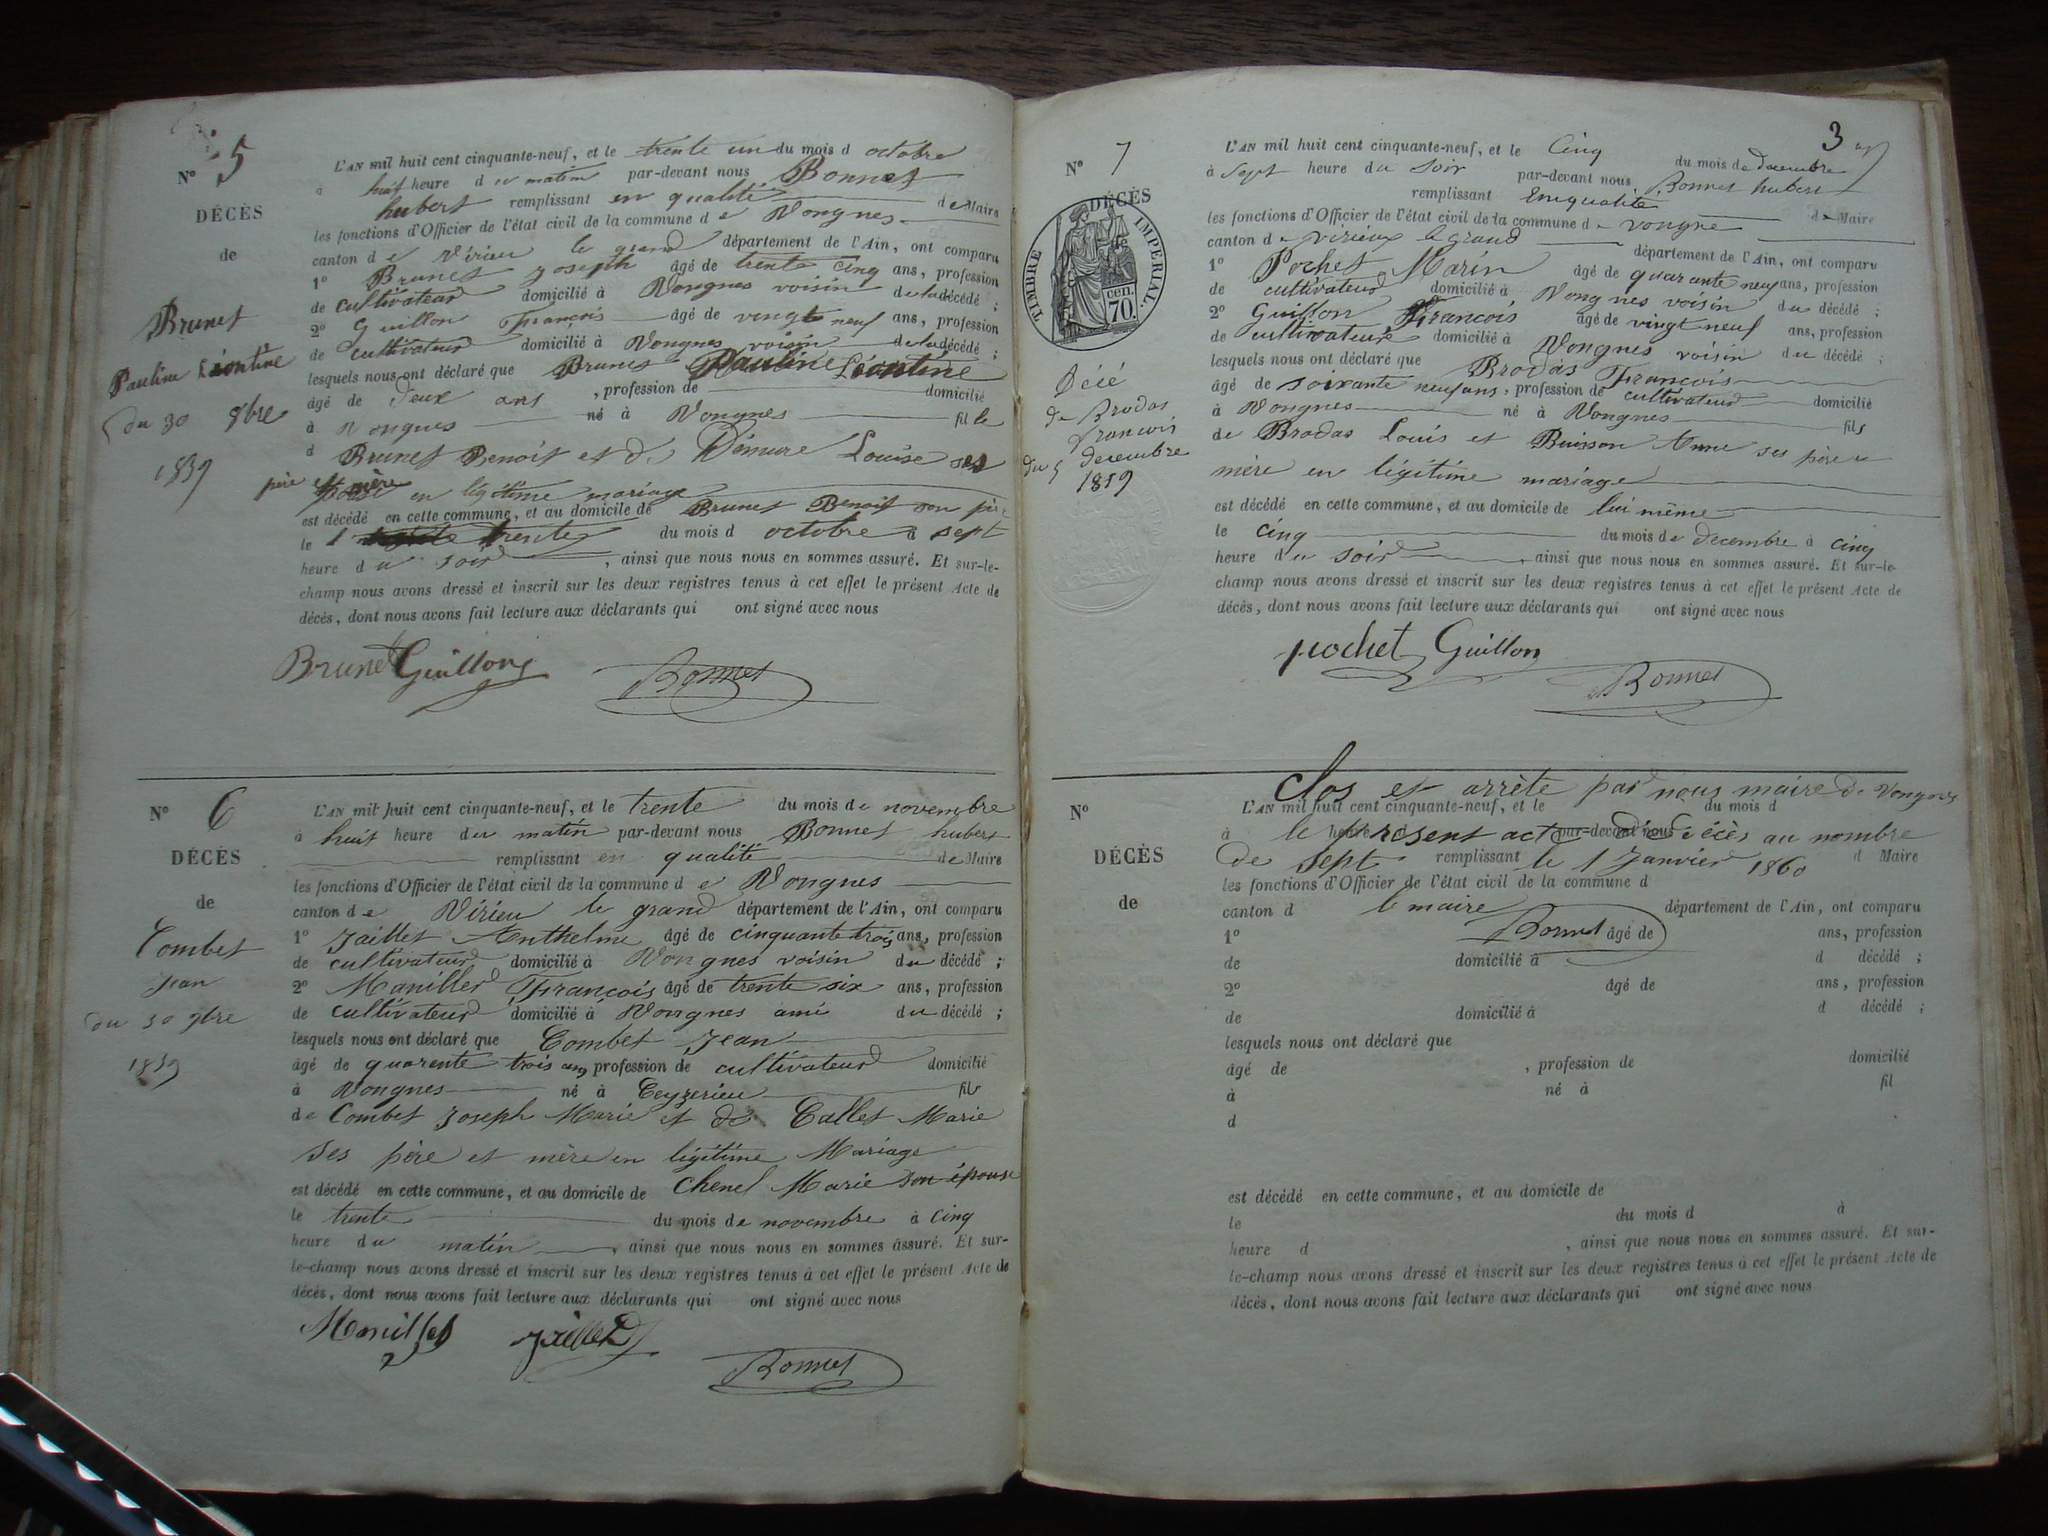 N° 5
DÉCÈS
de
Brunet
Pauline Léontine
du 30 8bre
1859
L'AN mil huit cent cinquante-neuf, et le trente un du mois d octobre
à huit heure du matin par-devant nous Bonnet
hubert remplissant en qualité de Maire
les fonctions d'Officier de l'état civil de la commune de Vongnes
canton de Virieu le grand département de l'Ain, ont comparu
1° Brunet Joseph âgé de trente cinq ans, profession
de cultivateur domicilié à Vongnes voisin de la décédé ;
2° Guillon François âgé de vingt neuf ans, profession
de cultivateur domicilié à Vongnes voisin de la décédé ;
lesquels nous ont déclaré que Brunet Pauline Léontine
âgé de deux ans , profession de domicilié
à Vongnes né à Vongnes fille
d Brunet Benoit et de Démure Louise ses
père et mère en légitime mariage
est décédé en cette commune, et au domicile de Brunet Benoit son père
le trente du mois d octobre à sept
heure du soir , ainsi que nous nous en sommes assuré. Et sur-le-
champ nous avons dressé et inscrit sur les deux registres tenus à cet effet le présent Acte de
décès, dont nous avons fait lecture aux déclarants qui ont signé avec nous
Brunet Guillon Bonnet
N° 6
DÉCÈS
de
Combet
Jean
du 30 9bre
1859
L'AN mil huit cent cinquante-neuf, et le trente du mois de novembre
à huit heure du matin par-devant nous Bonnet hubert
remplissant en qualité de Maire
les fonctions d'Officier de l'état civil de la commune de Vongnes
canton de Virieu le grand département de l'Ain, ont comparu
1° Jaillet Anthelme âgé de cinquante trois ans, profession
de cultivateur domicilié à Vongnes voisin du décédé ;
2° Maniller François âgé de trente six ans, profession
de cultivateur domicilié à Vongnes ami du décédé ;
lesquels nous ont déclaré que Combet Jean
âgé de quarente trois ans profession de cultivateur domicilié
à Vongnes né à Ceyzerieu fils
de Combet Joseph Marie et de Callet Marie
ses père et mère en légitime Mariage
est décédé en cette commune, et au domicile de Chenel Marie son épouse
le trente du mois de novembre à cinq
heure du matin , ainsi que nous nous en sommes assuré. Et sur-
le-champ nous avons dressé et inscrit sur les deux registres tenus à cet effet le présent Acte de
décès, dont nous avons fait lecture aux déclarants qui ont signé avec nous
Maniller Jaillet
Bonnet
3
N° 7
DÉCÈS
de
TIMBRE IMPÉRIAL.
70 cen.
Décé
de Brodas
françois
du 5 decembre
1859
L'AN mil huit cent cinquante-neuf, et le Cinq du mois de decembre
à sept heure du soir par-devant nous Bonnet hubert
remplissant En qualité de Maire
les fonctions d'Officier de l'état civil de la commune de vongne
canton de virieux le grand département de l'Ain, ont comparu
1° Pochet Marin âgé de quarante neuf ans, profession
de cultivateur domicilié à Vongnes voisin du décédé ;
2° Guillon François âgé de vingt neuf ans, profession
de cultivateur domicilié à Vongnes voisin du décédé ;
lesquels nous ont déclaré que Brodas François
âgé de soixante neuf ans, profession de cultivateur domicilié
à Vongnes né à Vongnes fils
de Brodas Louis et Buisson Anne ses père et
mère en légitime mariage
est décédé en cette commune, et au domicile de lui même
le cinq du mois de decembre à cinq
heure du soir , ainsi que nous nous en sommes assuré. Et sur-le-
champ nous avons dressé et inscrit sur les deux registres tenus à cet effet le présent Acte de
décès, dont nous avons fait lecture aux déclarants qui ont signé avec nous
pochet Guillon
Bonnet
Clos et arrète par nous maire de Vongnes
N°
DÉCÈS
de
L'AN mil huit cent cinquante-neuf, et le du mois d
à heure d par-devant nous
le present acte de décès au nombre
de sept le 1 Janvier 1860
remplissant d Maire
les fonctions d'Officier de l'état civil de la commune d
canton d le maire département de l'Ain, ont comparu
1° Bonnet âgé de ans, profession
de domicilié à d décédé ;
2° âgé de ans, profession
de domicilié à d décédé ;
lesquels nous ont déclaré que
âgé de , profession de domicilié
à né à fil
d
est décédé en cette commune, et au domicile de
le du mois d à
heure d , ainsi que nous nous en sommes assuré. Et sur-
le-champ nous avons dressé et inscrit sur les deux registres tenus à cet effet le présent Acte de
décès, dont nous avons fait lecture aux déclarants qui ont signé avec nous